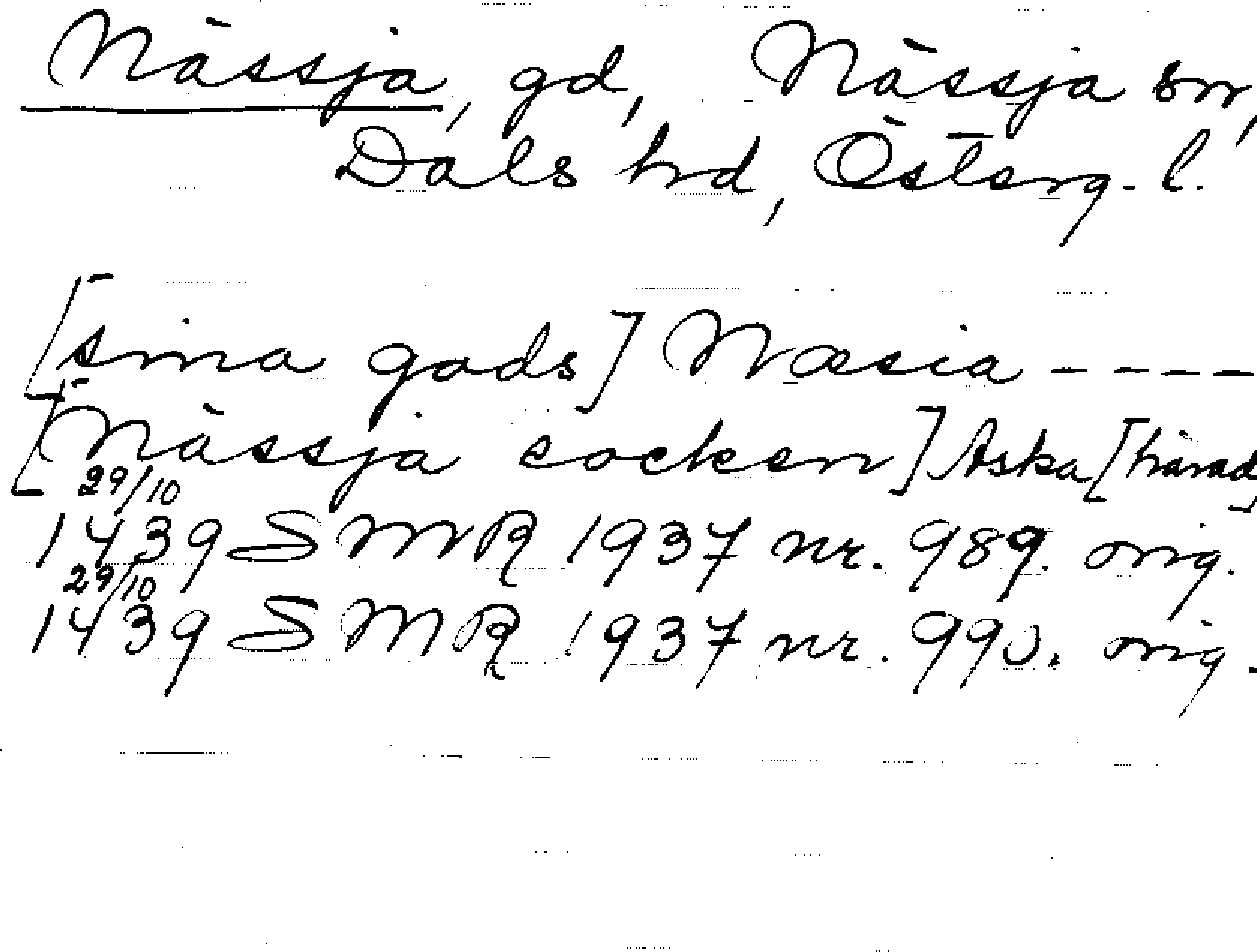 Nässja, gd, Nässja sn,
Dals hd, Österg. l.
[sina gods] Næsia ----
[Nässja socken] Aska [härad]
29/10
1439 SMR 1937 nr. 989. orig.
29/10
1439 SMR 1937 nr. 990. orig.